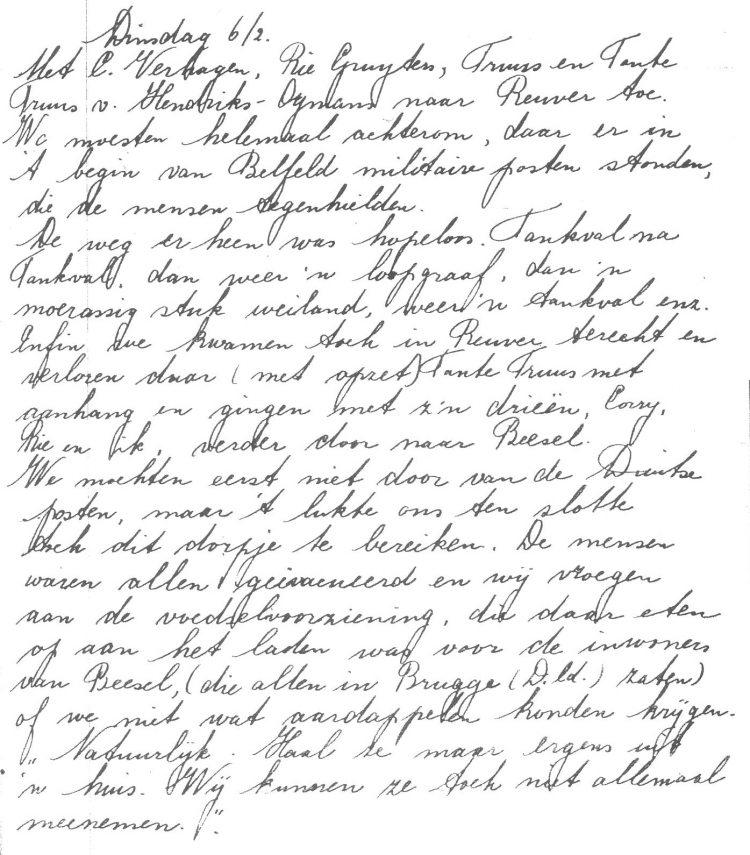 Dinsdag 6/2.
Met C. Verhagen, Rie Gruyters, Truus en Tante
Truus v. Hendriks-Oymans naar Reuver toe.
We moesten helemaal achterom, daar er in
't begin van Belfeld militaire posten stonden,
die de mensen tegenhielden.
De weg er heen was hopeloos. Tankval na
Tankval, dan weer 'n loopgraaf, dan 'n
moerassig stuk weiland, weer 'n tankval enz.
Enfin we kwamen toch in Reuver terecht en
verloren daar (met opzet) Tante Truus met
aanhang en gingen met z'n drieën, Corry,
Rie en ik, verder door naar Beesel.
We mochten eerst niet door van de Duitse
posten, maar 't lukte ons ten slotte
toch dit dorpje te bereiken. De mensen
waren allen geëvacueerd en wij vroegen
aan de voedselvoorziening, die daar eten
op aan het laden was voor de inwoners
van Beesel, (die allen in Brugge (D.ld.) zaten)
of we niet wat aardappelen konden krijgen.
„Natuurlijk. Haal ze maar ergens uit
'n huis. Wij kunnen ze toch niet allemaal
meenemen.".